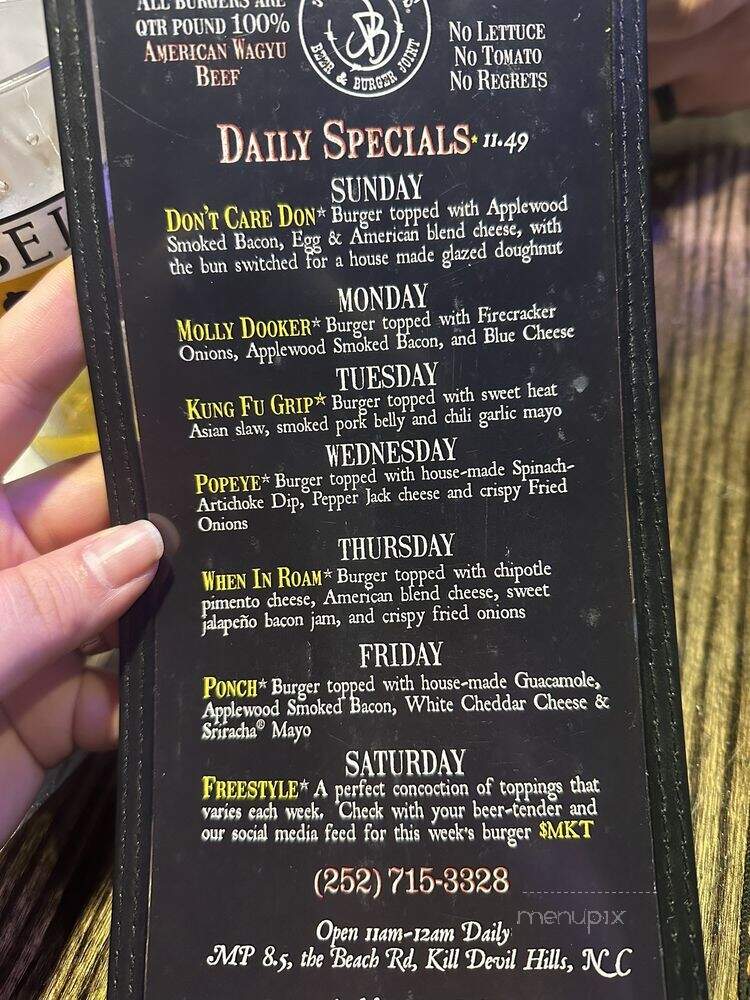 ALL BURGERS ARE
QTR POUND 100%
AMERICAN WAGYU
BEEF
BEER & BURGER JOINT
NO LETTUCE
NO TOMATO
NO REGRETS
DAILY SPECIALS* 11.49
SUNDAY
DON'T CARE DON* Burger topped with Applewood
Smoked Bacon, Egg & American blend cheese, with
the bun switched for a house made glazed doughnut
MONDAY
MOLLY DOOKER* Burger topped with Firecracker
Onions, Applewood Smoked Bacon, and Blue Cheese
TUESDAY
KUNG FU GRIP* Burger topped with sweet heat
Asian slaw, smoked pork belly and chili garlic mayo
WEDNESDAY
POPEYE* Burger topped with house-made Spinach-
Artichoke Dip, Pepper Jack cheese and crispy Fried
Onions
THURSDAY
WHEN IN ROAM* Burger topped with chipotle
pimento cheese, American blend cheese, sweet
jalapeño bacon jam, and crispy fried onions
FRIDAY
PONCH* Burger topped with house-made Guacamole,
Applewood Smoked Bacon, White Cheddar Cheese &
Sriracha® Mayo
SATURDAY
FREESTYLE* A perfect concoction of toppings that
varies each week. Check with your beer-tender and
our social media feed for this week's burger $MKT
(252) 715-3328
menupix
Open 11am-12am Daily
MP 8.5, the Beach Rd, Kill Devil Hills, NC